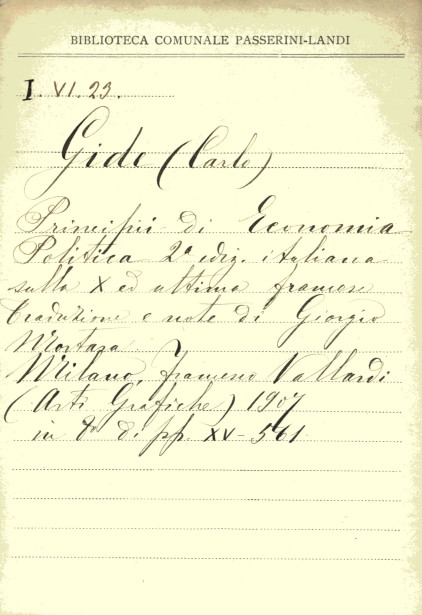 BIBLIOTECA COMUNALE PASSERINI-LANDI
I. VI. 23.
Gide (Carlo)
Principii di Economia
Politica 2ª ediz. italiana
sulla X ed ultima francese
traduzione e note di Giorgio
Mortara
Milano, Vallardi
(Arti Grafiche) 1907
in 8º di pp. XV-561